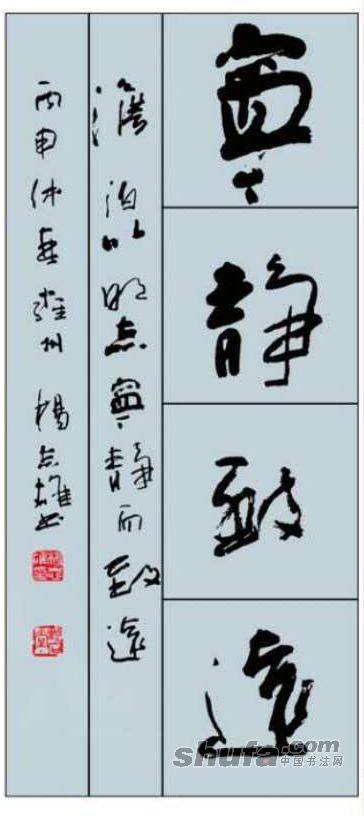 寧静致遠
澹泊以明志寧静而致遠
丙申 州 楊志雄书
shufa.com
中国书法网